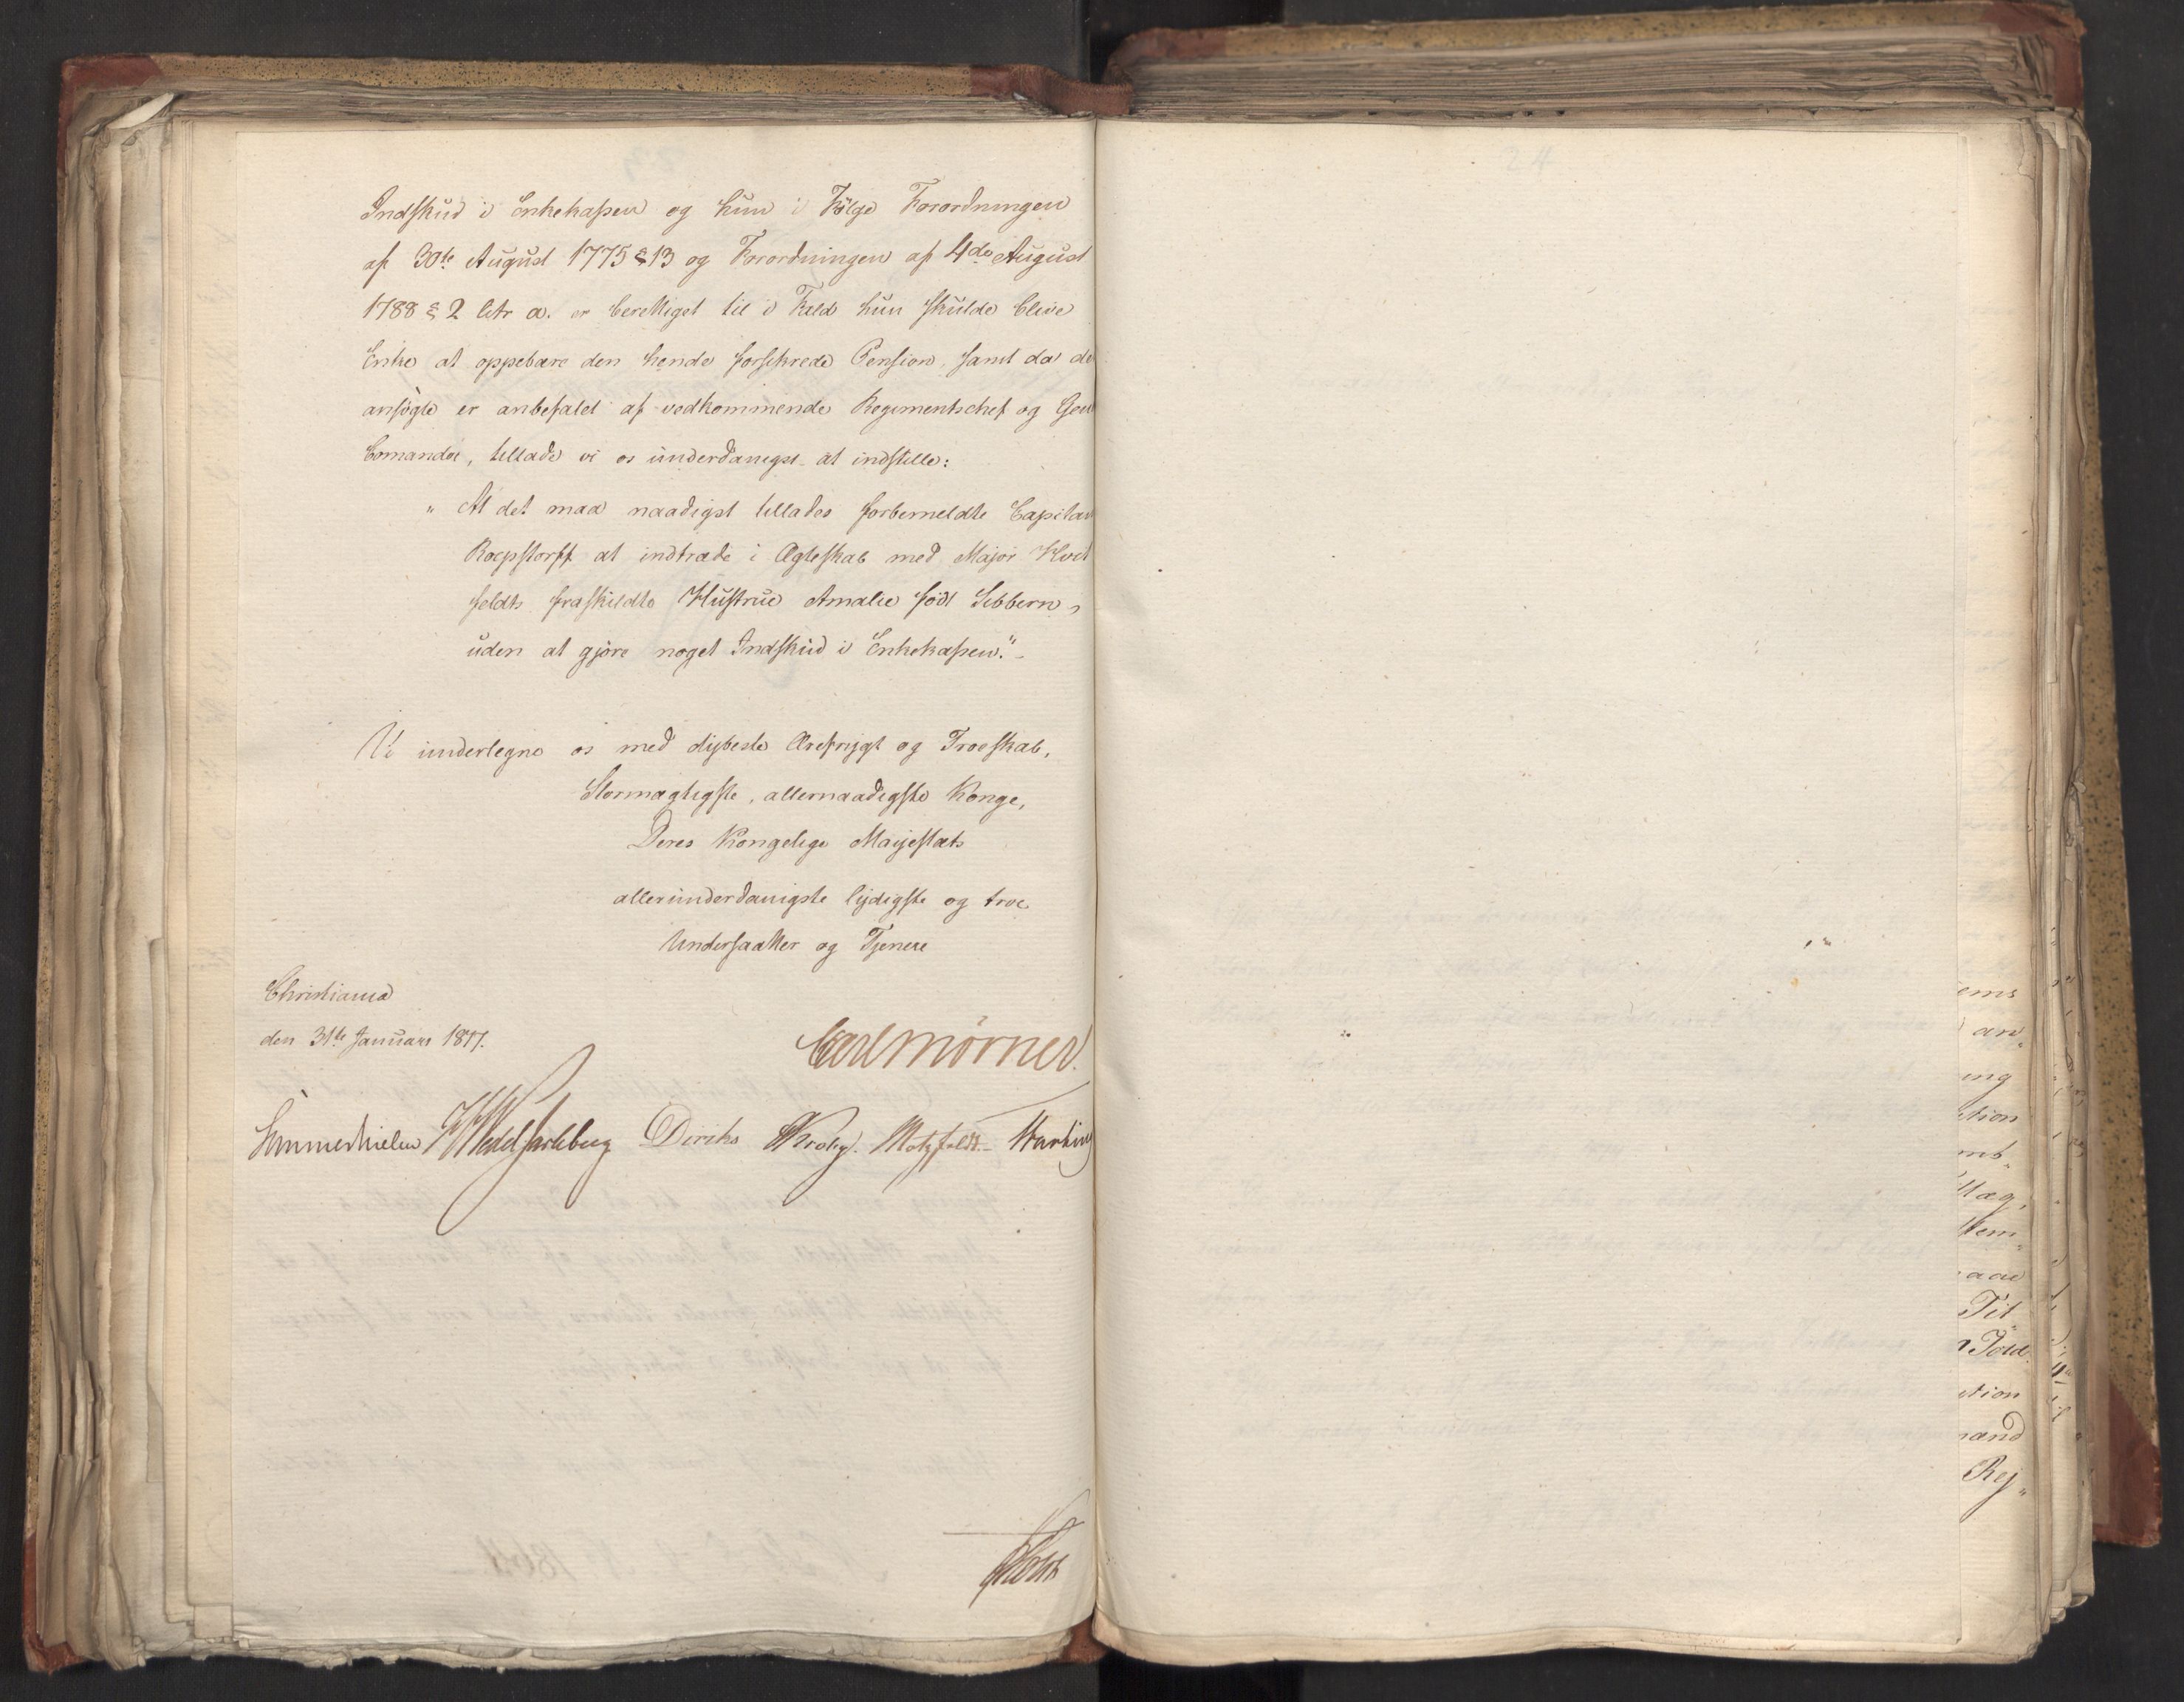 Indskud i Enkekassen og hun i Følge Forordningen
af 30te August 1775 § 13 og Forordningen af 4de August
1788 § 2 litr a. er berettiget til i Fald hun skulde blive
Enke at oppebære den hende forsikrede Pension, samt da de
ansøgte er anbefalet af vedkommende Regimentschef og Gen
Comandoe, tillade vi os underdanigst at indstille:
" At det maa naadigst tillades forbemeldte Capitain
Roepstorff at indtræde i Ægteskab med Major Hvit
feldts fraskildte Hustrue Amalie født Sibbern,
uden at gjøre noget Indskud i Enkekassen."
Vi undertegne os med dybeste Ærefrygt og Troeskab,
Stormægtigste, allernaadigste Konge,
Deres Kongelige Mayestæts
allerunderdanigste lydigste og troe
Undersaatter og Tjenere
Christiania
den 31te Januars 1817.
Carl Mörner.
Sommerhielm HWedel Jarlsberg Diriks Krohg. Motzfeldt. Harbin
Holst
24
ems
an„
ing
ction
mb„
ttæg,
ttem„
aae
Tit
Told
ction
mand
Rej„